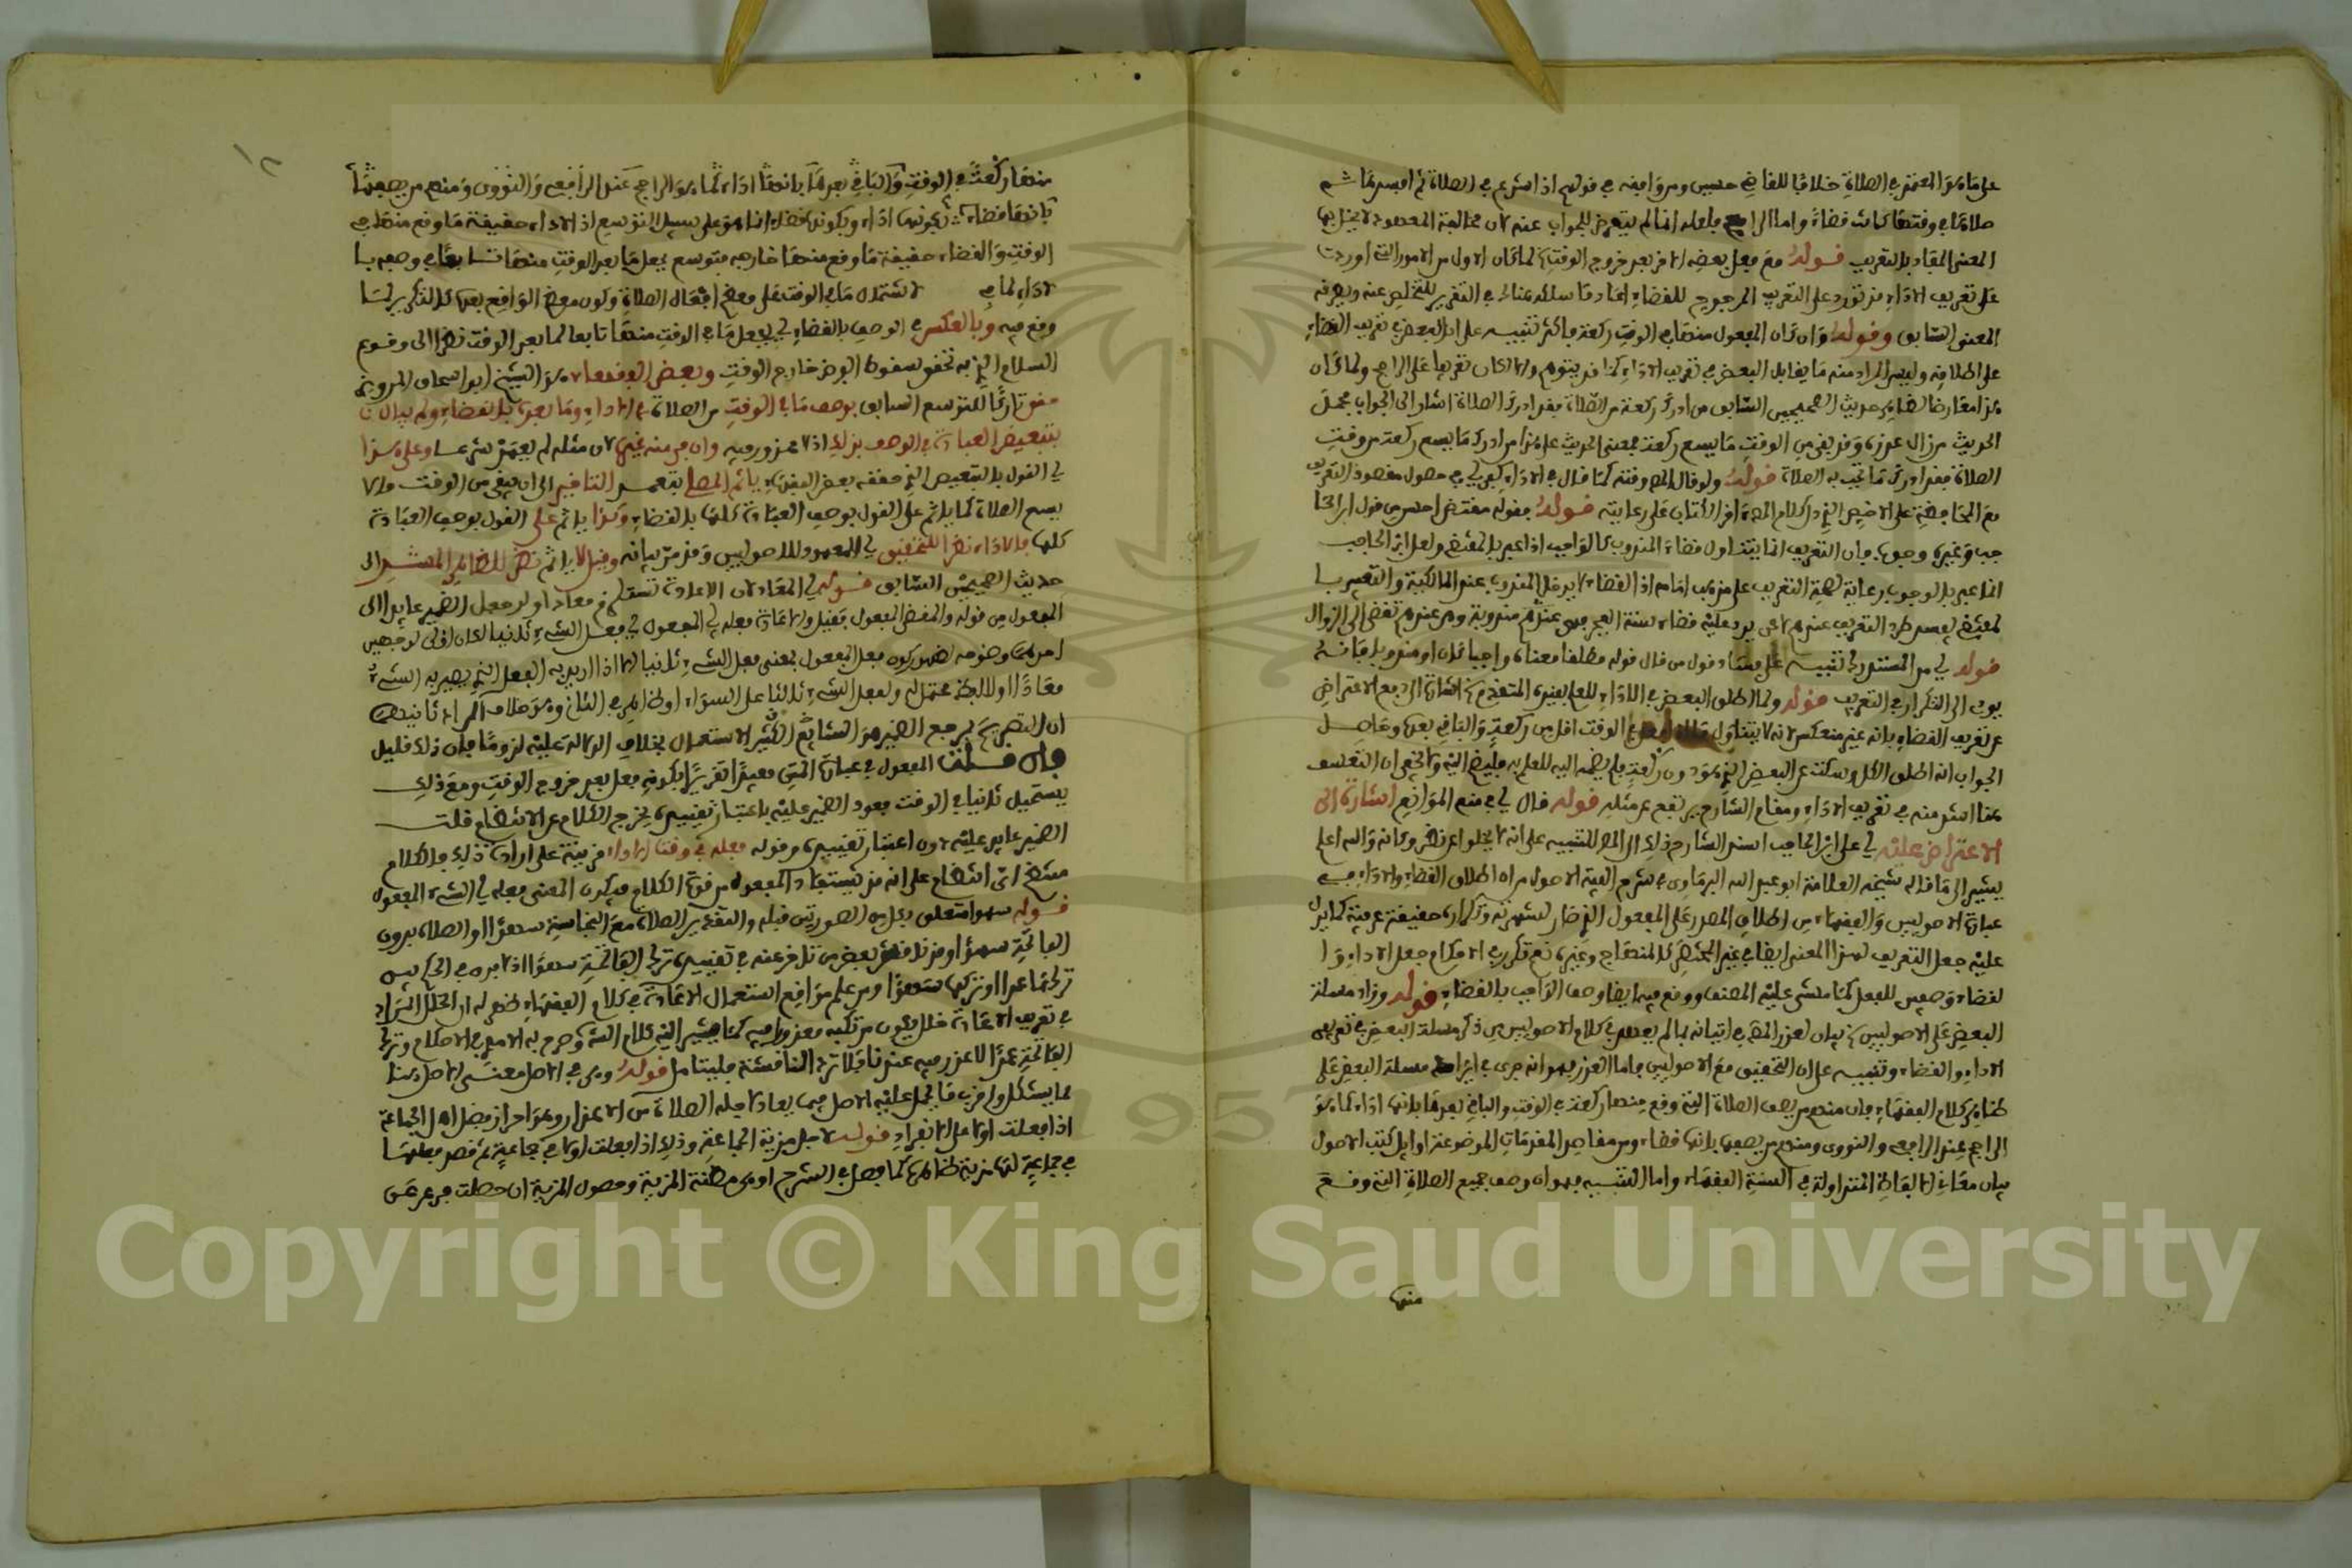 على ما هو المعتمد في الصلاة خلافا للقاضي حسين ومن وافقه في قولهم اذا شرع في الصلاة ثم افسدها ثم
صلاها في وقتها كانت قضاء واما الرابع فلعله انما لم يتعرض للجواب عنه لان مخالفة المعهود لا يخل بها
المعنى المقاد بالتعريف قوله مع فعل بعضه الاخر بعد خروج الوقت لما كان الاول من الامور التي اوردت
على تعريف الاداء قد تورد على التعريف المرجوح للقضاء اعاد ما سلكه هنالك في التقرير للتخلص عنه وبعرفه
المعنى السابق وقوله وان كان المفعول منها في الوقت ركعة فاكثر تنبيه على ان البعض في تعريف القضاء
على اطلاقه وليس المراد منه ما يقابل البعض في تعريف الاداء كما قد يتوهم والا لكان تعريفا على الراجح ولما كان
هذا معارضا لظاهر حديث الصحيحين السابق من ادرك ركعة من الصلاة فقد ادرك الصلاة اشار الى الجواب بحمل
الحديث من زال عذره وقد بقي من الوقت ما يسع ركعة فمعنى الحديث على هذا من ادرك ما يسع ركعة من وقت
الصلاة فقد ادرك ما تجب به الصلاة قوله ولو قال المص وقته كما قال في الاداء كفى اي في حصول مقصود التعريف
مع المحافظة على الاخصر الذي كلام المص اخر الكتاب على رعايته قوله فقوله مقتض احسن من قول ابن الحا
جب وغيره وجوبه فان التعريف انما يتناول قضاء المندوب كالواجب اذا عبر بالمقتضي ولعل ابن الحاجب
انما عبر بالوجوب رعاية لصحة التعريف على مذهب امامه اذ القضاء لا يدخل المندوب عند المالكية والتعبير با
لمقتضي يفسد طرد التعريف عندهم لا في يرد عليه قضاء سنة الفجر فهي عندهم مندوبة وهي عندهم تقضى الى الزوال
قوله اي من المستدرك تنبيه على فساد قول من قال قوله مطلقا معناه واجبا كان او مندوبا فانه
يودي الى التكرار في التعريف قوله ولما اطلق البعض في الاداء للعلم بقيده المتقدم اشارة الى دفع الاعتراض
عن تعريف القضاء بانه غير منعكس لانه لا يتناول في الوقت اقل من ركعة والباقي بعده وحاصل
الجواب انه اطلق الكل وسكت عن البعض الذي هو دون ركعة فلم يضمه اليه للعلم به فليضم اليه ولا يخفى ان التعسف
هنا اشد منه في تعريف الاداء ومقام الشارح يرتفع عن مثله قوله قال اي في منع الموانع اشارة الى
الاعتراض عليه اي على ابن الحاجب اسند الشارح ذلك الى المص للتنبيه على انه لا يخلوا عن نظر وكانه والله اعلم
يشير الى ما قاله شيخه العلامة ابو عبد الله البرماوي في شرح الفية الاصول من ان اطلاق القضاء والاداء في
عبارة الاصوليين والفقهاء من اطلاق المصدر على المفعول الذي صار لشهرته وتكراره حقيقة عرفية كما يدل
عليه جعل التعريف لهذا المعنى ايضا في غير المختصر كالمنهاج وغيره نعم تكرر في الاحكام جعل الاداء وا
لقضاء وصفين للفعل كما مشى عليه المصنف ووقع فيه ايضا وصف الواجب بالقضاء قوله وزاد مسئلة
البعض على الاصوليين بيان لعذر المص في اتيانه بما لم يعهد في كلام الاصوليين من ذكر مسئلة البعض في تعريفي
الاداء والقضاء وتنبيه على ان التحقيق مع الاصوليين فاما العذر فهو انه جرى في ايراده مسئلة البعض على
ظاهر كلام الفقهاء فان منهم من يصف الصلاة التي وقع منها ركعة في الوقت والباقي بعدها بانها اداء كما هو
الراجح عند الرافعي والنووي ومنهم من يصفها بانها قضاء ومن مقاصد المقدمات الموضوعة اوائل كتب الاصول
بيان معاني الالفاظ المتداولة في السنة الفقهاء واما التنبيه فهو ان وصف جميع الصلاة التي وقع
منها
منها ركعة في الوقت والباقي بعدها بانها اداء كما هو الراجح عند الرافعي والنووي ومنهم من يصفها
بانها قضاء بكونها اداء وبكونها قضاء انما هو على سبيل التوسع اذ الاداء حقيقة ما وقع منها في
الوقت والقضاء حقيقة ما وقع منها خارجه فتوسع بجعل ما بعد الوقت منها تابعا في وصفه با
لاداء لما في لاشتمال ما في الوقت على معظم افعال الصلاة وكون معظم الواقع بعدها كالتكرير لما
وقع فيه وبالعكس في الوصف بالقضاء اي بجعل ما في الوقت منها تابعا لما بعد الوقت نظرا الى وقوع
السلام الذي به تحقق سقوط الفرض خارج الوقت وبعض الفقهاء هو الشيخ ابو اسحاق المروزي
حقق تاركا للتوسع السابق بوصف ما في الوقت من الصلاة بالاداء وما بعده بالقضاء ولم يبال
بتبعيض العبادة في الوصف بذلك اذ لا محذور فيه وان فر منه غيره لان مثله لم يعهد شرعا وعلى هذا
اي القول بالتبعيض الذي حققه بعض الفقهاء ياثم المصلي بتعمد التاخير الى ان يبقى من الوقت ما لا
يسع الصلاة كما ياثم على القول بوصف العبادة كلها بالقضاء وكذا ياثم على القول بوصف العبادة
كلها بالاداء نظرا للتحقيق اي المعهود للاصوليين وقد مر بيانه وقيل لا ياثم نظرا للظاهر المستند الى
حديث الصحيحين السابق قوله اي المعاد لان الاعادة تستعلم من معاد اولى جعل الضمير عايدا الى
المفعول من قوله والمقضي المفعول فقيل والاعادة فعله اي المفعول اي فعل الشيء ثانيا لكان اولى لوجهين
احدهما وضوحه لظهور كون فعل المفعول بمعنى فعل الشيء ثانيا الا اذا اريد به الفعل الذي يصير به الشيء
معادا اولا لمحتمل له ولفعل الشيء ثالثا على السواء او لظاهر في الثاني وهو خلاف المراد ثانيهما
ان التصريح بمرجع الضمير هو الشائع الكثير الاستعمال بخلاف الدلالة عليه لزوما فان ذلك قليل
فان قلت المفعول في عبارة المتن مقيد بكونه فعل بعد خروج الوقت ومع ذلك
يستحيل ثانيا في الوقت فعود الضمير عليه باعتبار تقييده يخرج الكلام عن الانتظام قلت
الضمير عايد عليه دون اعتبار تقييده وقوله فعله في وقت الاداء قرينة على ارادة ذلك فالكلام
منتظم اي انتظام على انه قد يستفاد المفعول من قوة الكلام فيكون المعنى فعله اي الشيء المفعول
قوله سهوا متعلق بكل من الصورتين قبله والتقدير الصلاة مع النجاسة سهوا او الصلاة بدون
الفاتحة سهوا وقد نظر بعض من تاخر عنه في تقييده ترك الفاتحة سهوا اذ لا فرق في الحكم بين
تركها عمدا او تركها سهوا ومن علم مواقع استعمال الاعادة في كلام الفقهاء ظهر له ان الخلل المراد
في تعريف الاعادة خلل يكون مرتكبه معذورا فيه كما يشير اليه كلام الشارح وصرح به الامدي في الاحكام وترك
الفاتحة عمدا لا عذر فيه عند قائله ترك المناقشة فليتامل قوله وهي في الاصل معنى الاصل هنا
مما يشكل واقرب ما يحمل عليه الاصل فيما يعاد لاجله الصلاة من الاعذار وهو احراز فضل اهل الجماعة
اذا فعلت اولا على الانفراد قوله لاجل مزية الجماعة وذلك اذا فعلت اولا في جماعة ثم قصد فعلها
في جماعة لها مزية ظاهرة كما فصل في الشرح او هي مظنة المزية وحصول المزية ان حصلت فرع عن
Copyright © King Saud University
1957